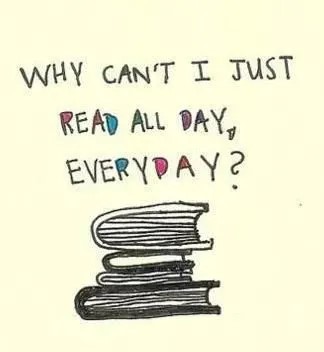 WHY CAN'T I JUST
READ ALL DAY,
EVERYDAY?